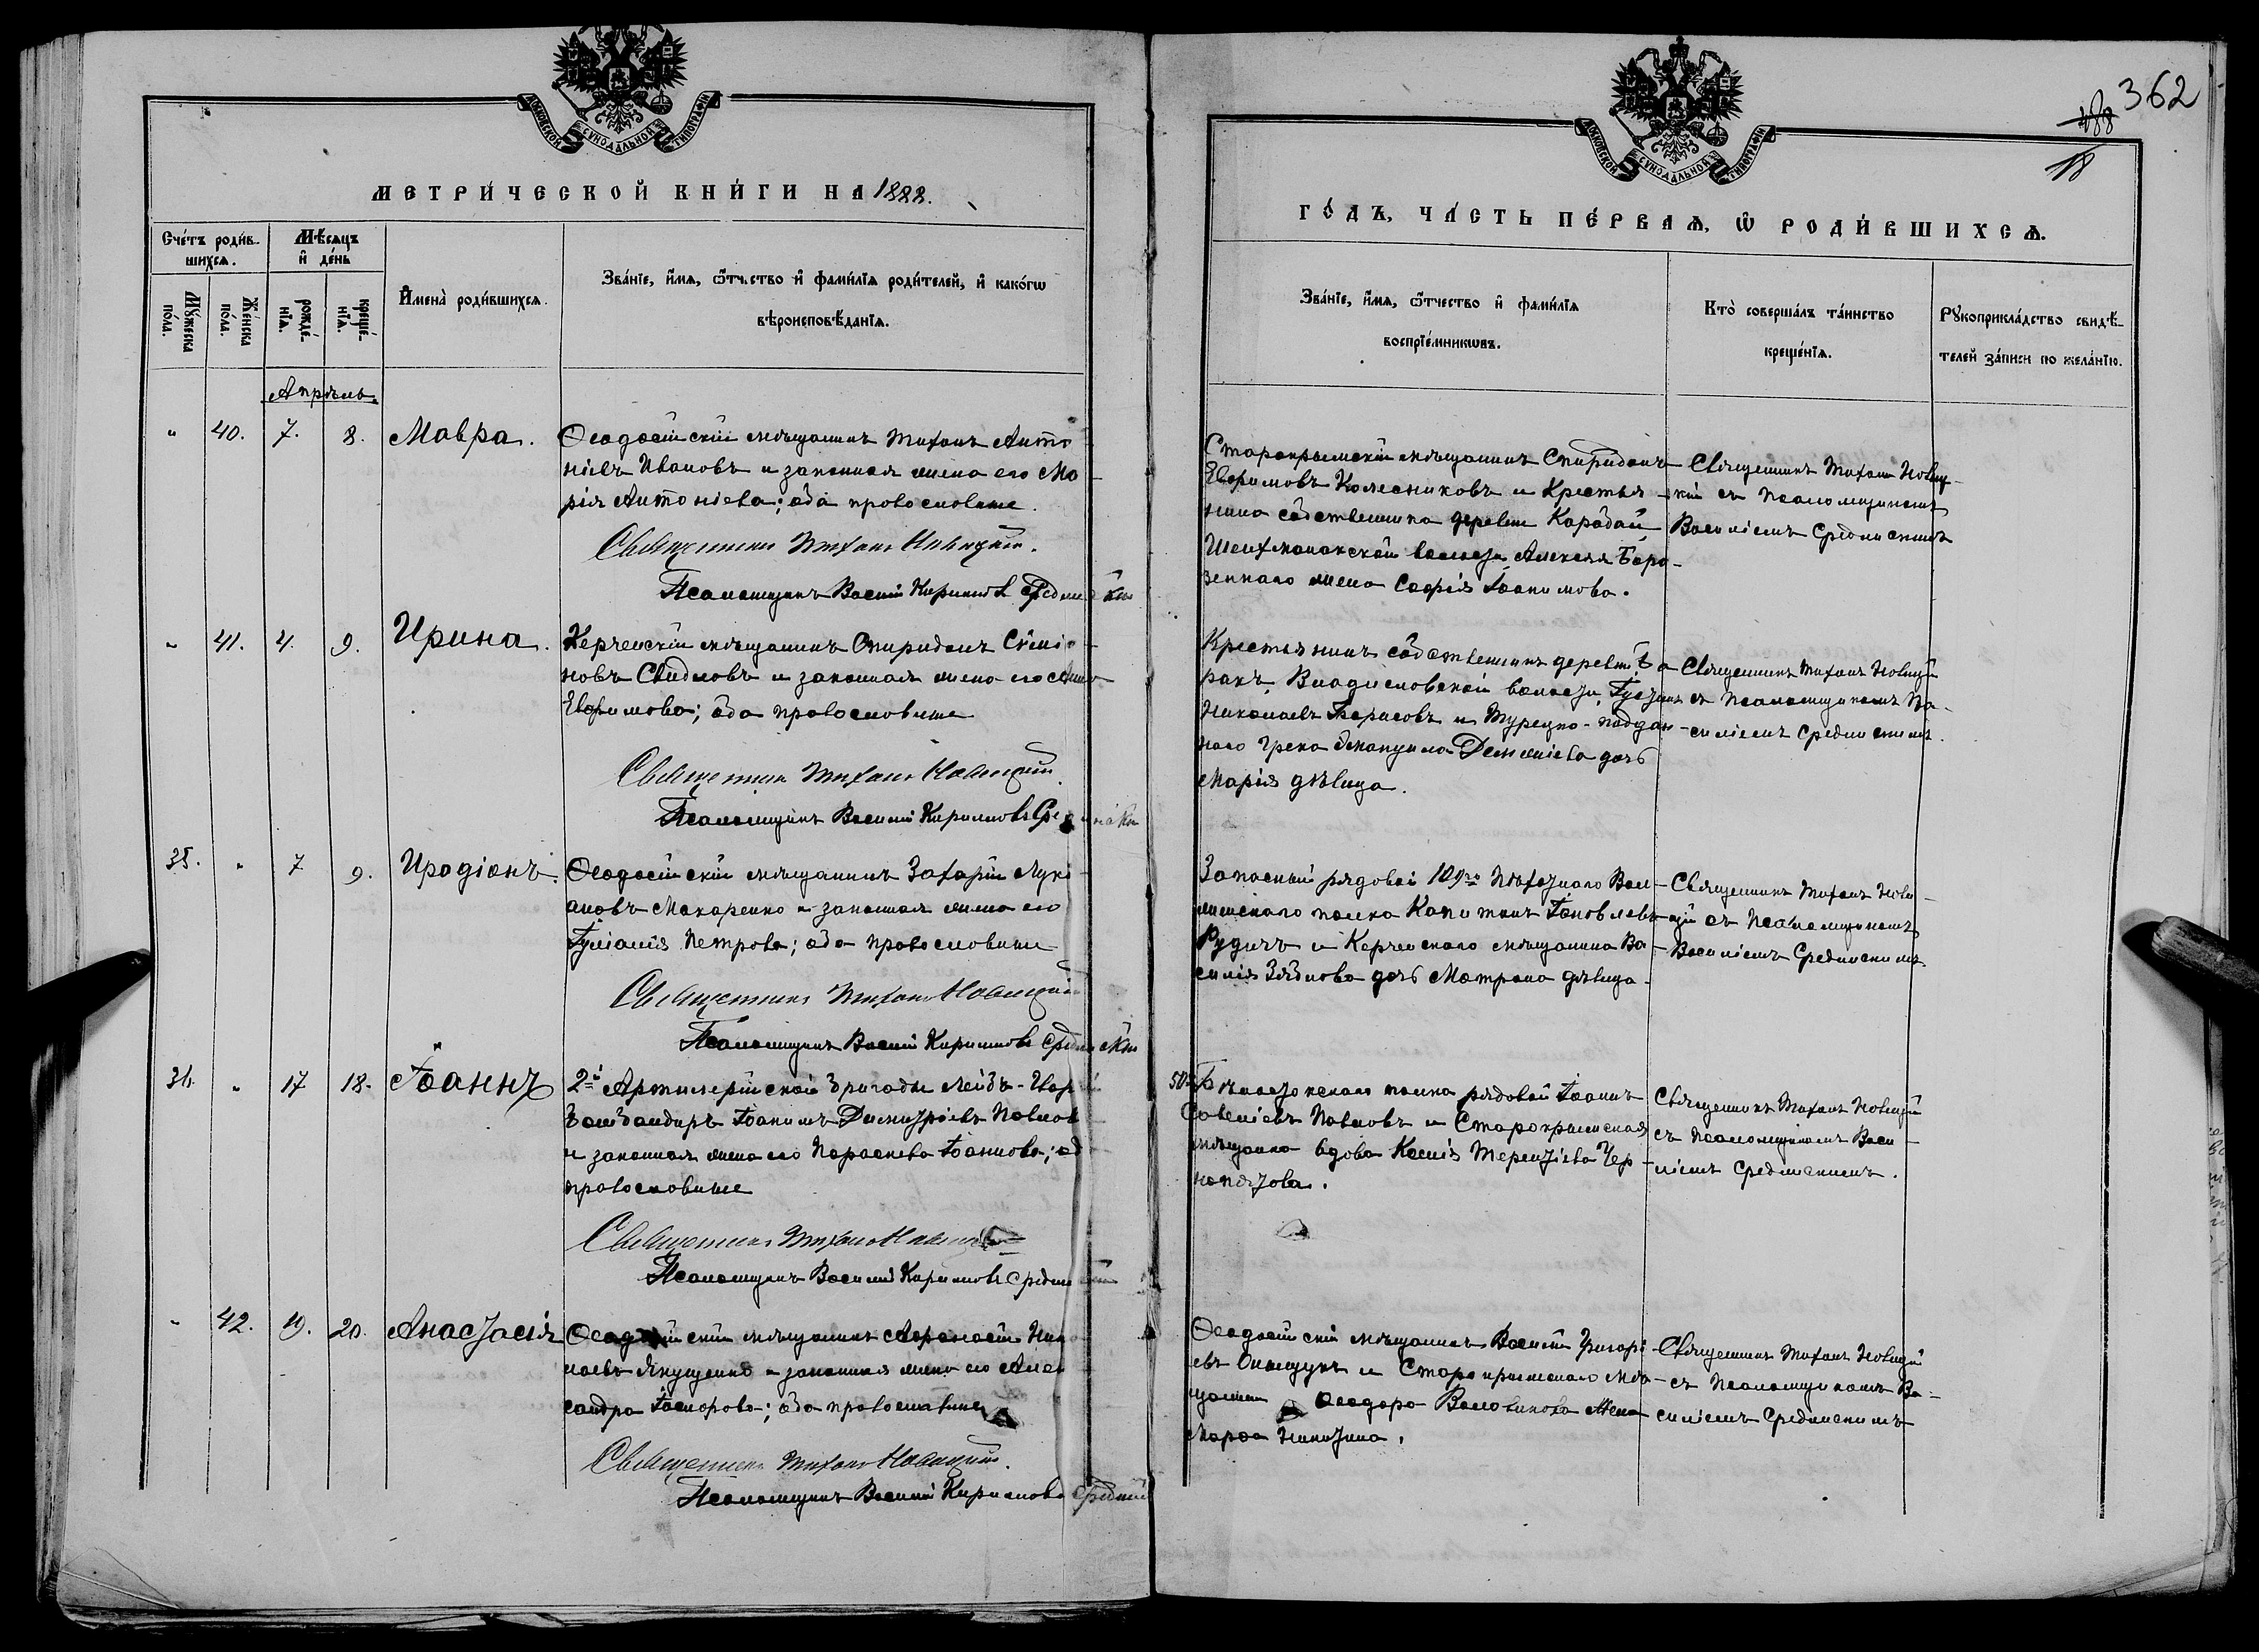 МОСКОВСКОЙ СУНОДАЛЬНОЙ ТИПОГРАФІИ
МЕТРИ́ЧЕСКОЙ КНИ́ГИ НА 1888.
Сче́тъ роди́в-
шихсѧ.
Мѣ́сѧцъ
и҆ де́нь
Мꙋ́жеска
по́ла.
Же́нска
по́ла.
рожде́-
нїѧ.
креще́-
нїѧ.
И҆мена̀ роди́вшихсѧ.
Зва́нїе, и҆́мѧ, ѻ҆́тчество и҆ фами́лїѧ роди́телей, и҆ како́гѡ
вѣроисповѣ́данїѧ.
Апрѣль
" 40. 7. 8. Мавра.
Ѳеодосійскій мѣщанинъ Тихонъ Анто-
ніевъ Ивановъ и законная жена его Ма-
рія Антоніева; оба православные.
Священникъ Тихонъ Новицкій.
Псаломщикъ Василій Кирилловъ
" 41. 4. 9. Ирина.
Керченскій мѣщанинъ Спиридонъ
новъ и законная жена его Анна
Евфимова; оба православные
Священникъ Тихонъ Новицкій
Псаломщикъ Василій Кирилловъ
35. " 7 9. Иродіонъ.
Ѳеодосійскій мѣщанинъ Захарій Луки-
ановъ Макаренко и законная жена его
Іуліанія Петрова; оба православные
Священникъ Тихонъ Новицкій
Псаломщикъ Василій Кирилловъ
36. " 17 18. Іоаннъ
2-й Артиллерійской бригады Лейбъ-Гвардіи
бомбардиръ Іоакимъ Димитріевъ Павлов
и законная жена его Параскева Іоаннова; об
православные
Священникъ Тихонъ Новицкій
Псаломщикъ Василій Кирилловъ
" 42. 19. 20. Анастасія
Ѳеодосійскій мѣщанинъ Аѳанасій Нико
лаевъ Якущенко и законная жена его Алек
сандра; оба православные
Священникъ Тихонъ Новицкій.
Псаломщикъ Василій Кирилловъ
МОСКОВСКОЙ СУНОДАЛЬНОЙ ТИПОГРАФІИ
362
188
18
ГО́ДЪ, ЧА́СТЬ ПЕ́РВАѦ, Ѡ҆ РОДИ́ВШИХСѦ.
Зва́нїе, и҆́мѧ, ѻ҆́тчество и҆ фами́лїѧ
воспрїе́мникѡвъ.
Кто̀ соверша́лъ та́инство
креще́нїѧ.
Рꙋкоприкла́дство свидѣ́-
телей за́писи по жела́нїю.
Старокрымскій мѣщанинъ Спиридонъ
Евфимовъ Колесниковъ и Крестья-
нина собственника деревни Карабай
волости Алексѣя
жена Софія Іоакимова.
Священникъ Тихонъ Новиц-
кій съ Псаломщикомъ
Василіемъ Срединскимъ
Крестьянинъ собственникъ деревни Ба-
ракъ, Владиславской волости,
Николаевъ Борисовъ и Турецко-поддан-
наго грека дочь
Марія дѣвица.
Священникъ Тихонъ Новицкій
съ Псаломщикомъ Ва-
силіемъ Срединскимъ.
Запасный рядовой 109го Пѣхотнаго Вол-
полка Капитонъ
Рудичъ и Керченскаго мѣщанина Ва-
силія дочь Матрона дѣвица.
Священникъ Тихонъ Нови-
цкій съ Псаломщикомъ
Василіемъ Срединскимъ
50го Бѣлостокскаго полка рядовой Іоаннъ
Савеліевъ Павловъ и Старокрымская
мѣщанка вдова Ксенія Терентіева Чер-
Священникъ Тихонъ Новицкій
съ Псаломщикомъ Васи-
ліемъ Срединскимъ.
Ѳеодосійскій мѣщанинъ Василій Григорі-
евъ Онищукъ и Старокрымскаго мѣ-
щанина Ѳеодора жена
Марѳа Никитина.
Священникъ Тихонъ Новицкій
съ Псаломщикомъ Ва-
силіемъ Срединскимъ